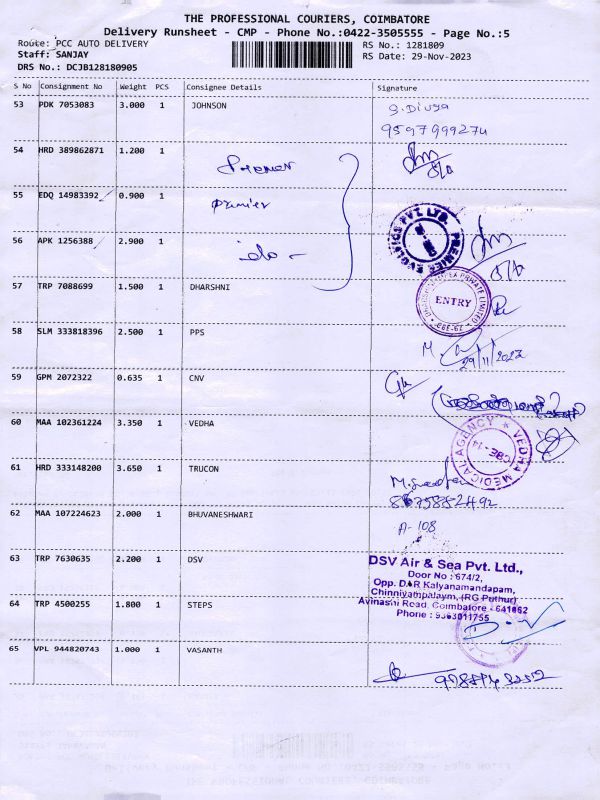 THE PROFESSIONAL COURIERS, COIMBATORE
Delivery Runsheet - CMP - Phone No.:0422-3505555 - Page No.:5
Route: PCC AUTO DELIVERY
RS No.: 1281809
Staff: SANJAY
RS Date: 29-Nov-2023
DRS No.: DCJB128180905
S No Consignment No Weight PCS Consignee Details Signature
53 PDK 7053083 3.000 1 JOHNSON
S. Divya
9597999274
54 HRD 389862871 1.200 1 Premier
55 EDQ 14983392 0.900 1 premier
56 APK 1256388 2.900 1 ido
PREMIER EVOLVICS PVT. LTD.
57 TRP 7088699 1.500 1 DHARSHNI
ENTRY
58 SLM 333818396 2.500 1 PPS
29/11/2023
59 GPM 2072322 0.635 1 CNV
60 MAA 102361224 3.350 1 VEDHA
VEDHA MEDICAL AGENCY
CBE - 14
61 HRD 333148200 3.650 1 TRUCON
62 MAA 107224623 2.000 1 BHUVANESHWARI
A-108
63 TRP 7630635 2.200 1 DSV
DSV Air & Sea Pvt. Ltd.,
Door No : 674/2,
Opp. D.R Kalyanamandapam,
Chinniyampalaym, (RG Puthur)
Avinashi Road, Coimbatore - 641062
Phone : 9363011755
64 TRP 4500255 1.800 1 STEPS
65 VPL 944820743 1.000 1 VASANTH